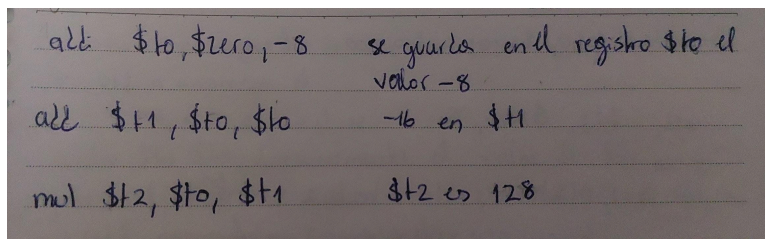 addi $t0, $zero, -8 se guarda en el registro $t0 el
valor -8
add $t1, $t0, $t0 -16 en $t1
mul $t2, $t0, $t1 $t2 es 128